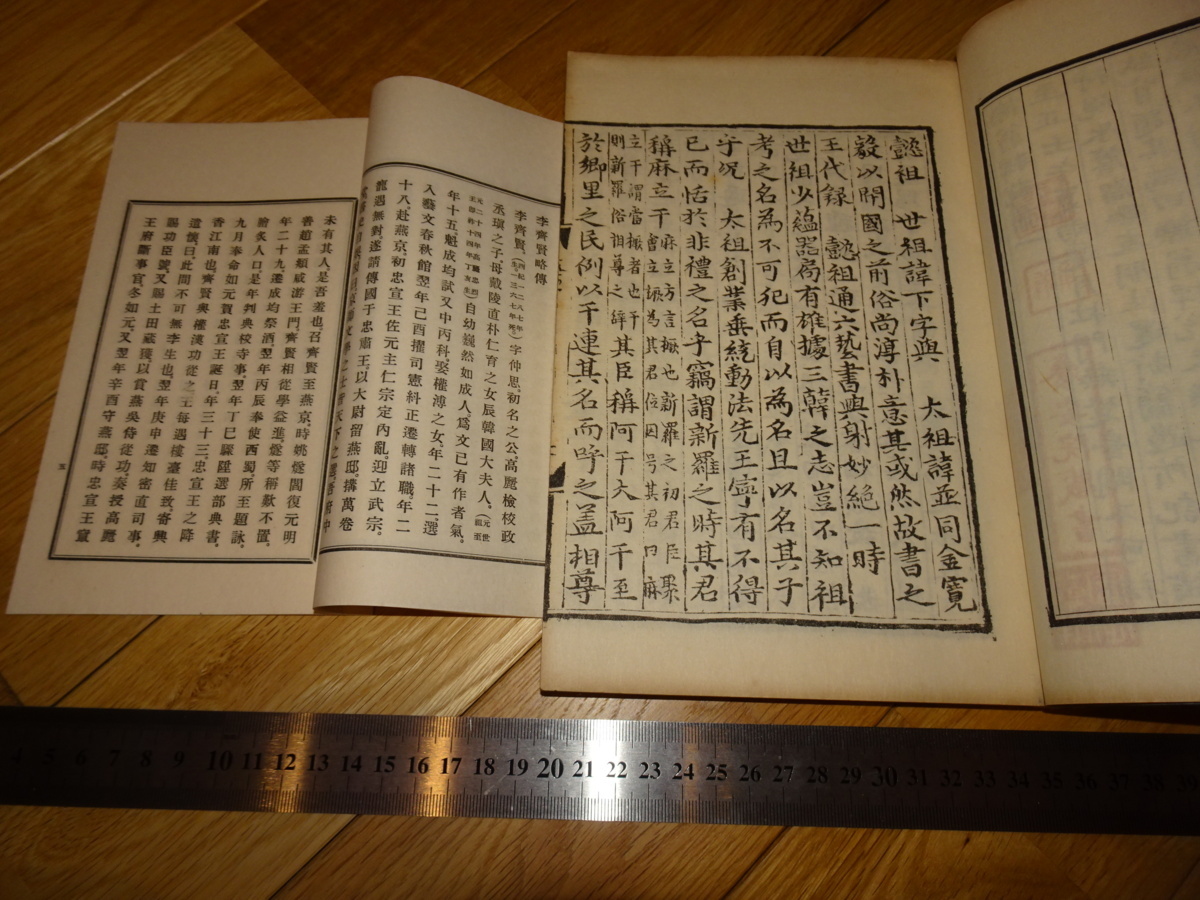 懿祖　世祖諱下字與　太祖諱並同金寬
毅以開國之前俗尚淳朴意其或然故書之
王代錄　懿祖通六藝書與射妙絕一時
世祖少蘊器局有雄據三韓之志豈不知祖
考之名為不可犯而自以為名且以名其子
乎况　太祖創業垂統動法先王寧有不得
已而恬於非禮之名乎竊謂新羅之時其君
稱麻立干麻立方言橛也新羅之初君臣聚會立橛為其君位因号其君曰麻
立干謂當橛者也干則新羅俗相尊之辭其臣稱阿干大阿干至
於鄉里之民例以干連其名而呼之盖相尊
李齊賢略傳
李齊賢、字仲思、初名之公、高麗檢校政
丞瑱之子、母戴陵直朴仁育之女辰韓國大夫人。
自幼巍然如成人、爲文已有作者氣。
年十五魁成均試、又中丙科、娶權溥之女、年二十二、選
入藝文春秋館、翌年己酉擢司憲糾正、遷轉諸職、年二
十八、赴燕京、初忠宣王佐元主仁宗定內亂、迎立武宗、
寵遇無對、遂請傳國于忠肅王、以大尉留燕邸、搆萬卷
未有其人、是吾羞也、召齊賢至燕京、時姚燧閻復元明
善趙孟頫咸游王門、齊賢相從學益進、燧等稱歎不置。
年二十九、遷成均祭酒、翌年丙辰奉使西蜀、所至題詠、
膾炙人口、是年判典校寺事、翌年丁巳驟陞選部典書、
九月奉命如元賀忠宣王誕日、年三十三、忠宣王之降
香江南也、齊賢與權漢功從之、王每遇樓臺佳致、寄興
遣懷、曰、此間不可無李生也、翌年庚申遷知密直司事、
賜功臣號、又賜土田藏獲、以賞燕吳侍從功、奏授高麗
王府斷事官、冬如元、又翌年辛酉守燕邸、時忠宣王竄
五
4 5 6 7 8 9 10 11 12 13 14 15 16 17 18 19 20 21 22 23 24 25 26 27 28 29 30 31 32 33 34 35 36 37 38 39